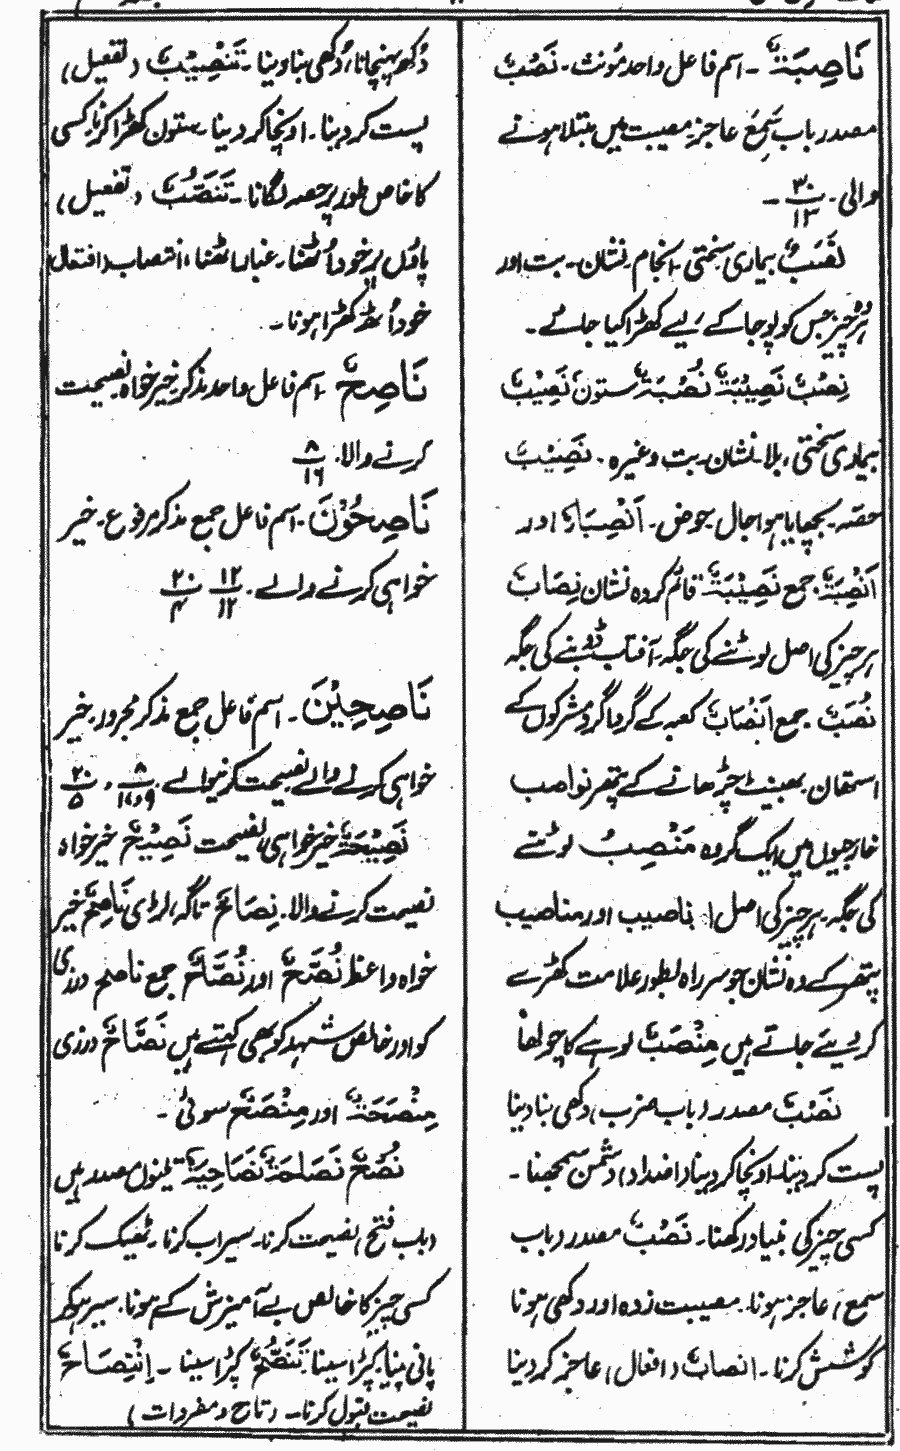 نَاصِبَةٌ ۔ اسم فاعل واحد مؤنث ۔ نَصْبٌ
مصدر باب سَمِعَ عاجز مصیبت میں مبتلا ہونے
والی ۔ ۳۰/۱۳ ۔
نُصُبٌ بیماری سختی ۔ انجام ۔ نشان ۔ بت اور
ہر وہ چیز جس کو پوجا کے لیے کھڑا کیا جائے ۔
نِصْبٌ نَصِیْبَةٌ نُصْبَةٌ ستون نَصِیْبٌ
بیماری سختی، بلا ۔ نشان بت وغیرہ ۔ نَصِیْبٌ
حصہ بچھایا ہوا جال حوض ۔ اَنْصِبَاءُ اور
اَنْصِبَةٌ جمع نَصِیْبَةٌ قائم کردہ نشان نِصَابٌ
ہر چیز کی اصل لوٹنے کی جگہ ۔ آفتاب ڈوبنے کی جگہ
نُصُبٌ جمع اَنْصَابٌ کعبہ کے گردا گرد مشرکوں کے
استھان بھینٹ چڑھانے کے پتھر نواصب
خارجیوں میں ایک گروہ مَنْصِبٌ لوٹنے
کی جگہ ۔ ہر چیز کی اصل ناصیب اور مناصیب
پتھر کے وہ نشان جو سر راہ بطور علامت کھڑے
کر دیئے جاتے ہیں مِنْصَبٌ لوہے کا چولھا
نَصْبٌ مصدر (باب ضرب) دکھی بنا دینا
پست کر دینا ۔ اونچا کر دینا (اضداد) دشمن سمجھنا ۔
کسی چیز کی بنیاد رکھنا ۔ نَصْبٌ مصدر (باب
سمع) عاجز ہونا ۔ مصیبت زدہ اور دکھی ہونا
کوشش کرنا ۔ انصابٌ (افعال) عاجز کر دینا
دُکھ پہنچانا، دُکھی بنا دینا ۔ تَنْصِیْبٌ (تفعیل)
پست کر دینا ۔ اونچا کر دینا ۔ ستون کھڑا کرنا کسی
کا خاص طور پر حصہ لگانا ۔ تَنَصُّبٌ (تفعیل)
پاؤں پر خود اُٹھنا ۔ غبار اٹھنا، انتصاب (افتعال)
خود اُٹھ کھڑا ہونا ۔
نَاصِحٌ ۔ اسم فاعل واحد مذکر خیر خواہ نصیحت
کرنے والا ۔ ۸/۱۶
نَاصِحُوْنَ ۔ اسم فاعل جمع مذکر مرفوع ۔ خیر
خواہی کرنے والے ۔ ۱۲/۱۲ ۲۰/۴
نَاصِحِیْنَ ۔ اسم فاعل جمع مذکر مجرور ۔ خیر
خواہی کرنے والے نصیحت کرنیوالے ۔ ۸/۹و۱۰، ۲۰/۵
نَصِیْحَةٌ خیر خواہی، نصیحت نَصِیْحٌ خیر خواہ
نصیحت کرنے والا ۔ نِصَاحٌ تاگہ، لڑی نَاصِحٌ خیر
خواہ واعظ نُصَّحٌ اور نُصَّاحٌ جمع ناصح درزی
کو اور خالص شہد کو بھی کہتے ہیں نَصَّاحٌ درزی
مِنْصَحَةٌ اور مِنْصَحٌ سوئی ۔
نُصْحٌ نَصَاحَةٌ نَصَاحِیَةٌ تینوں مصدر ہیں
(باب فتح) نصیحت کرنا ۔ سیراب کرنا ۔ ٹھیک کرنا
کسی چیز کا خالص بے آمیزش کے ہونا ۔ سیر ہو کر
پانی پینا ۔ کپڑا سینا تَنَصُّحٌ کپڑا سینا ۔ اِنْتِصَاحٌ
نصیحت قبول کرنا ۔ (تاج و مفردات)